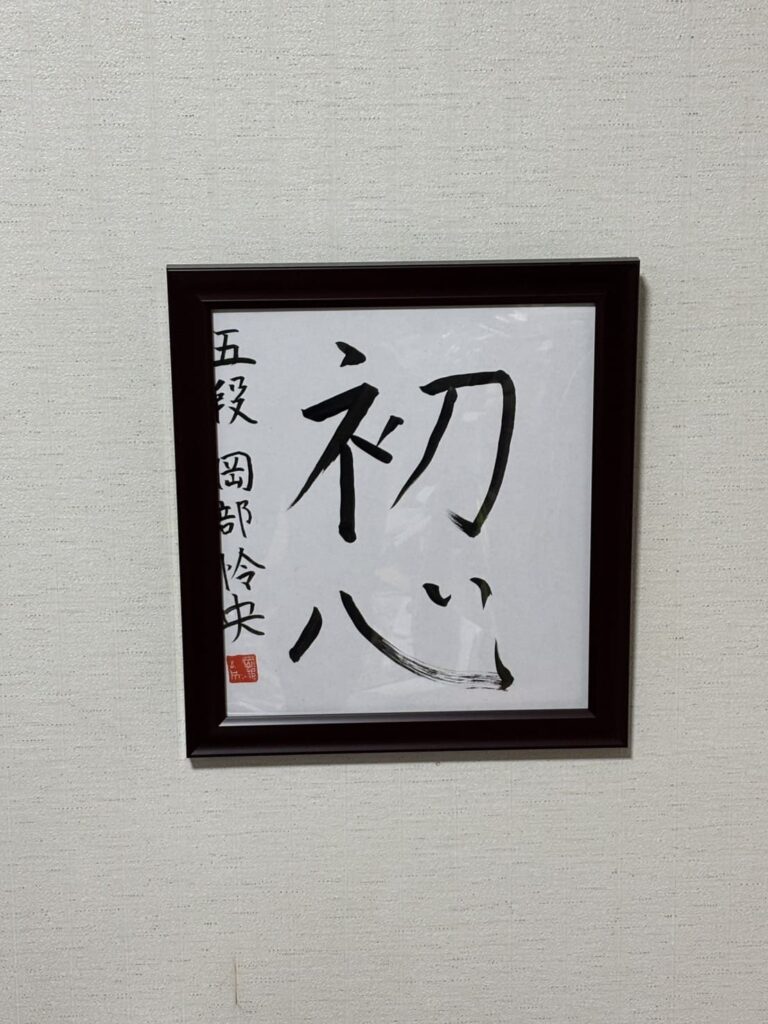 初心
五段 岡部怜央